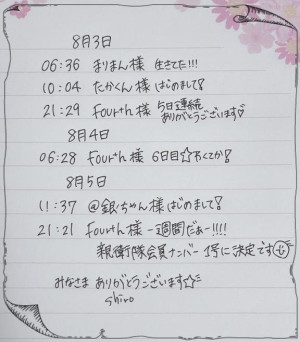 8月3日
06:36 まりまん様 生きてた!!!
10:04 たかくん様 はじめまして!
21:29 fourth様 5日連続
ありがとうございます♡
8月4日
06:28 fourth様 6日目☆
8月5日
11:37 @銀ちゃん様 はじめまして!
21:21 fourth様 一週間だぁー!!!!
親衛隊会員ナンバー 1号に決定です
みなさま ありがとうございます☆
shiro